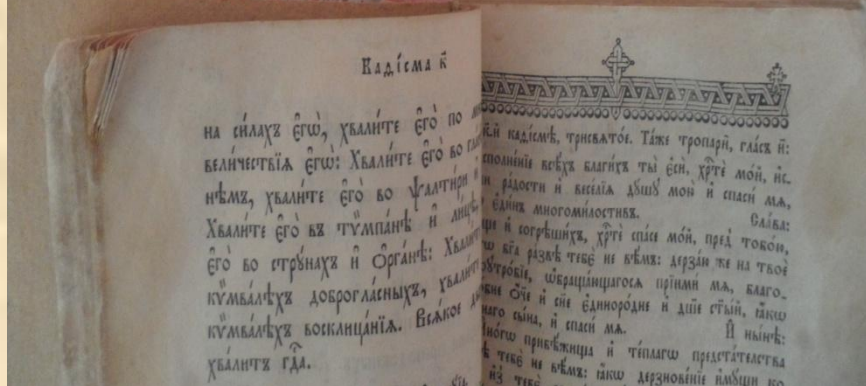 Каді́сма к҃
на си́лахъ є҆гѡ̀, хвали́те є҆го̀ по
вели́чествїѧ є҆гѡ̀: Хвали́те є҆го̀ во
нѣ́мъ, хвали́те є҆го̀ во ѱалти́ри и҆
Хвали́те є҆го̀ въ тѷмпа́нѣ и҆ ли́цѣ,
є҆го̀ во стрꙋ́нахъ и҆ ѻ҆рга́нѣ: Хвали́те
кѷмва́лѣхъ доброгла́сныхъ, хвали́те
кѷмва́лѣхъ восклица́нїѧ. Всѧ́кое
хва́литъ гдⷭ҇а.
каді́смѣ, трист҃о́е. Та́же тропарѝ, гла́съ и҃:
всѣ́хъ благи́хъ ты̀ є҆сѝ, хрⷭ҇тѐ мо́й, и҆с-
ра́дости и҆ весе́лїѧ дꙋ́шꙋ мою̀ и҆ спасѝ мѧ̀,
є҆ди́нъ многоми́лостивъ.
Сла́ва:
и҆ согрѣ́шихъ, хрⷭ҇тѐ сп҃се мо́й, пред̾ тобо́ю,
бг҃а ра́звѣ тебє̀ не вѣ́мъ: дерза́ю же на твоѐ
ѡ҆браща́ющагосѧ прїимѝ мѧ̀, благо-
ѻ҆́ч҃е и҆ сн҃е є҆диноро́дне и҆ дш҃е ст҃ы́й, ꙗ҆́кѡ
сы́на, и҆ спасѝ мѧ̀.
И҆ ны́нѣ:
прибѣ́жища и҆ те́плагѡ предста́телства
тебє̀ не вѣ́мъ: ꙗ҆́кѡ дерзнове́нїе и҆мꙋ́щи ко
и҆з̾ тебє̀